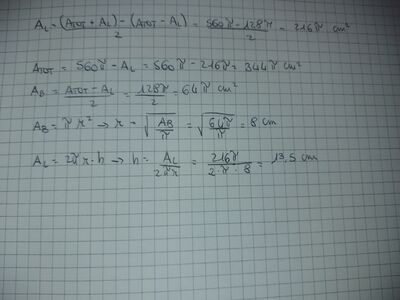 A_L = (A_TOT + A_L) - (A_TOT - A_L) / 2 = 560π - 128π / 2 = 216π cm²
A_TOT = 560π - A_L = 560π - 216π = 344π cm²
A_B = A_TOT - A_L / 2 = 128π / 2 = 64π cm²
A_B = π r² → r = √(A_B / π) = √(64π / π) = 8 cm
A_L = 2π r · h → h = A_L / 2πr = 216π / 2·π·8 = 13,5 cm